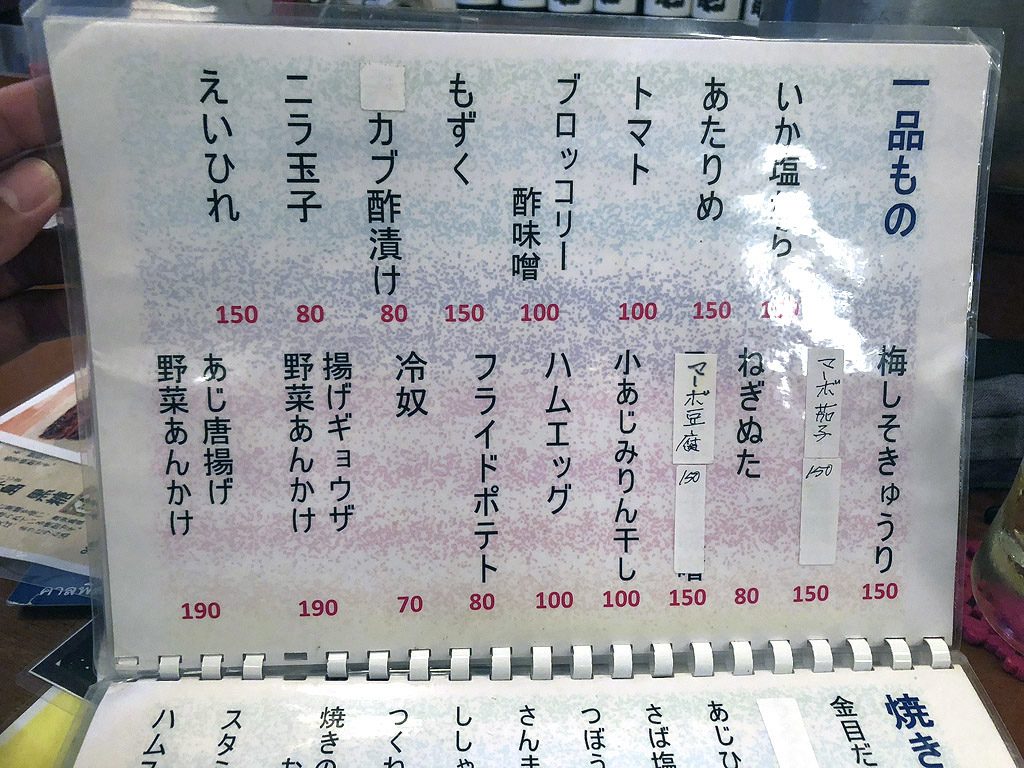 一品もの
いか塩
ら
あたりめ
150
トマト
100
ブロッコリー
酢味噌
100
もずく
150
カブ酢漬け
80
ニラ玉子
80
えいひれ
150
梅しそきゅうり
150
マーボ茄子
150
150
ねぎぬた
80
マーボ豆腐
150
噌
150
小あじみりん干し
100
ハムエッグ
100
フライドポテト
80
冷奴
70
揚げギョウザ
野菜あんかけ
190
あじ唐揚げ
野菜あんかけ
190
焼き
金目だ
あじひ
さば塩
つぼう
さんま
ししゃ
つくね
焼きの
スタミ
ハムス